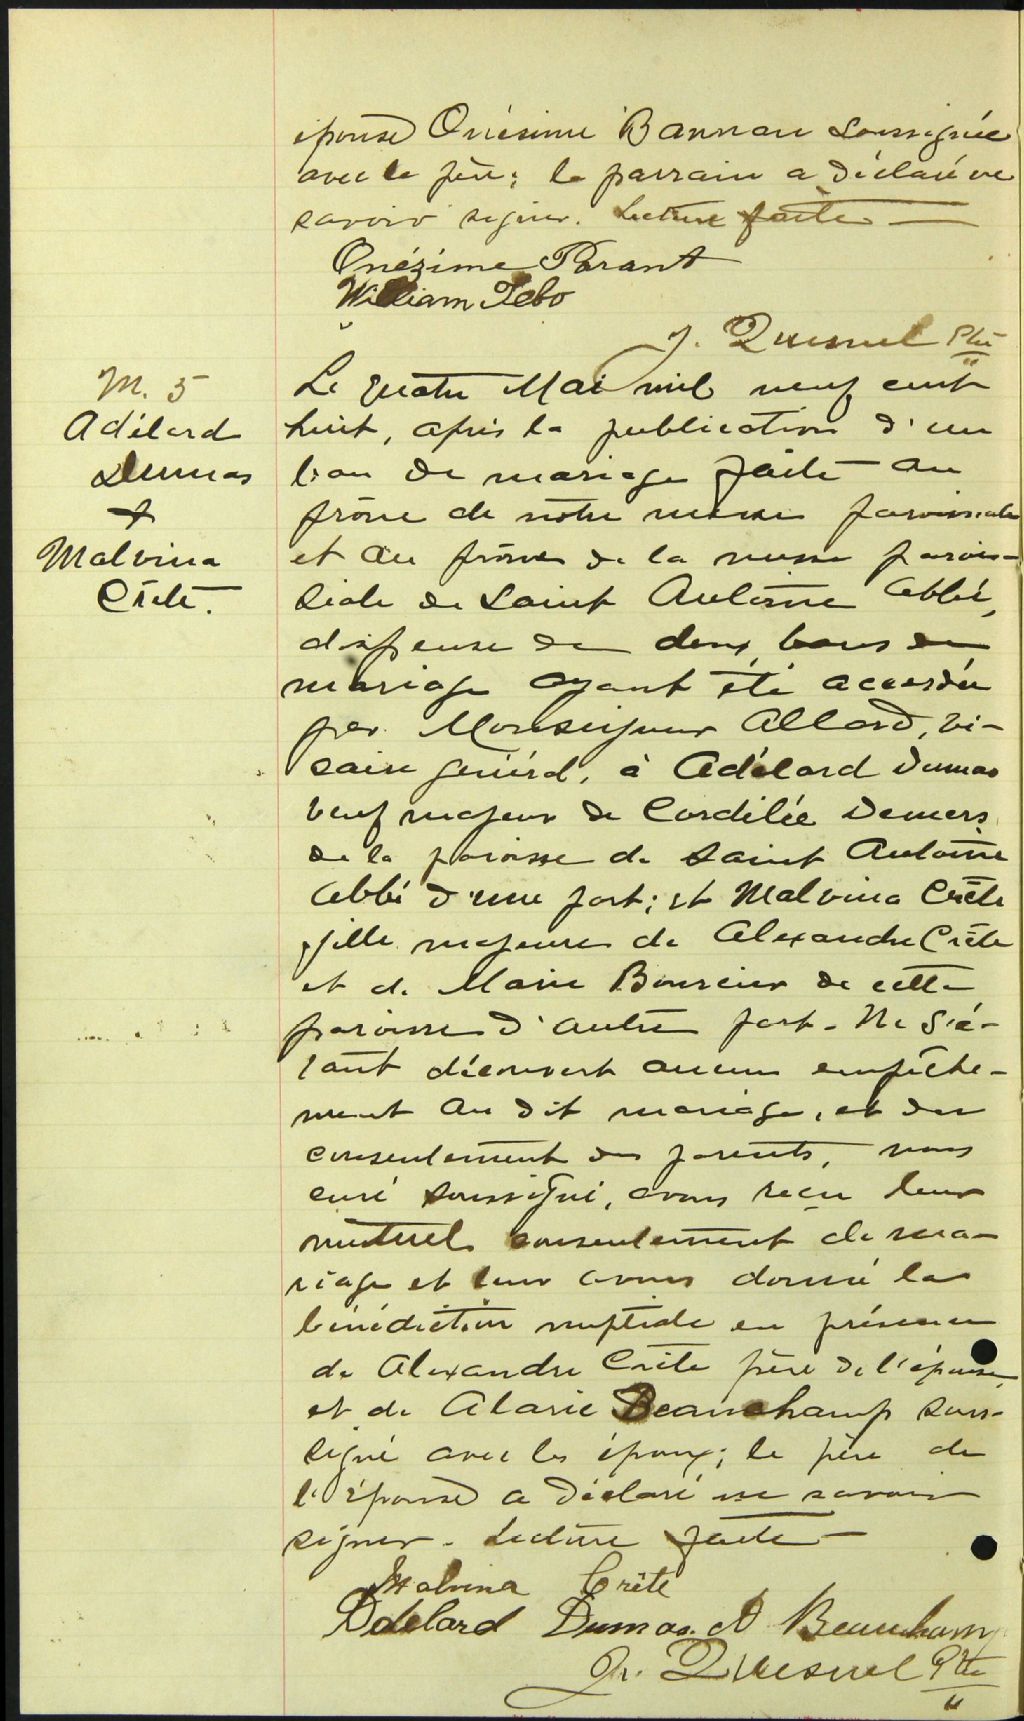 épouse Onésime Bannan soussignée
avec le père; le parrain a déclaré ne
savoir signer. Lecture faite
Onézime Parant
William Tebo
J. Quesnel Ptre
M. 5
Adélard
Dumas
+
Malvina
Crête.
Le quatre Mai mil neuf cent
huit, après la publication d'un
ban de mariage faite au
prône de notre messe paroissiale
et au prône de la messe parois-
siale de Saint Antoine Abbé,
dispense de deux bans de
mariage ayant été accordée
par Monseigneur Allard, vi-
caire général, à Adélard Dumas
veuf majeur de Cordélie Demers
de la paroisse de Saint Antoine
Abbé d'une part; et Malvina Crête
fille majeure de Alexandre Crête
et de Marie Bourcier de cette
paroisse d'autre part. Ne s'é-
tant découvert aucun empêche-
ment au dit mariage, et du
consentement des parents, nous
curé soussigné, avons reçu leur
mutuel consentement de ma-
riage et leur avons donné la
bénédiction nuptiale en présence
de Alexandre Crête père de l'épouse,
et de Alarie Beauchamp sous-
signé avec les époux; le père de
l'épouse a déclaré ne savoir
signer. Lecture faite
Malvina Crête
Adelard Dumas. A Beauchamp
Jr. Quesnel Ptre